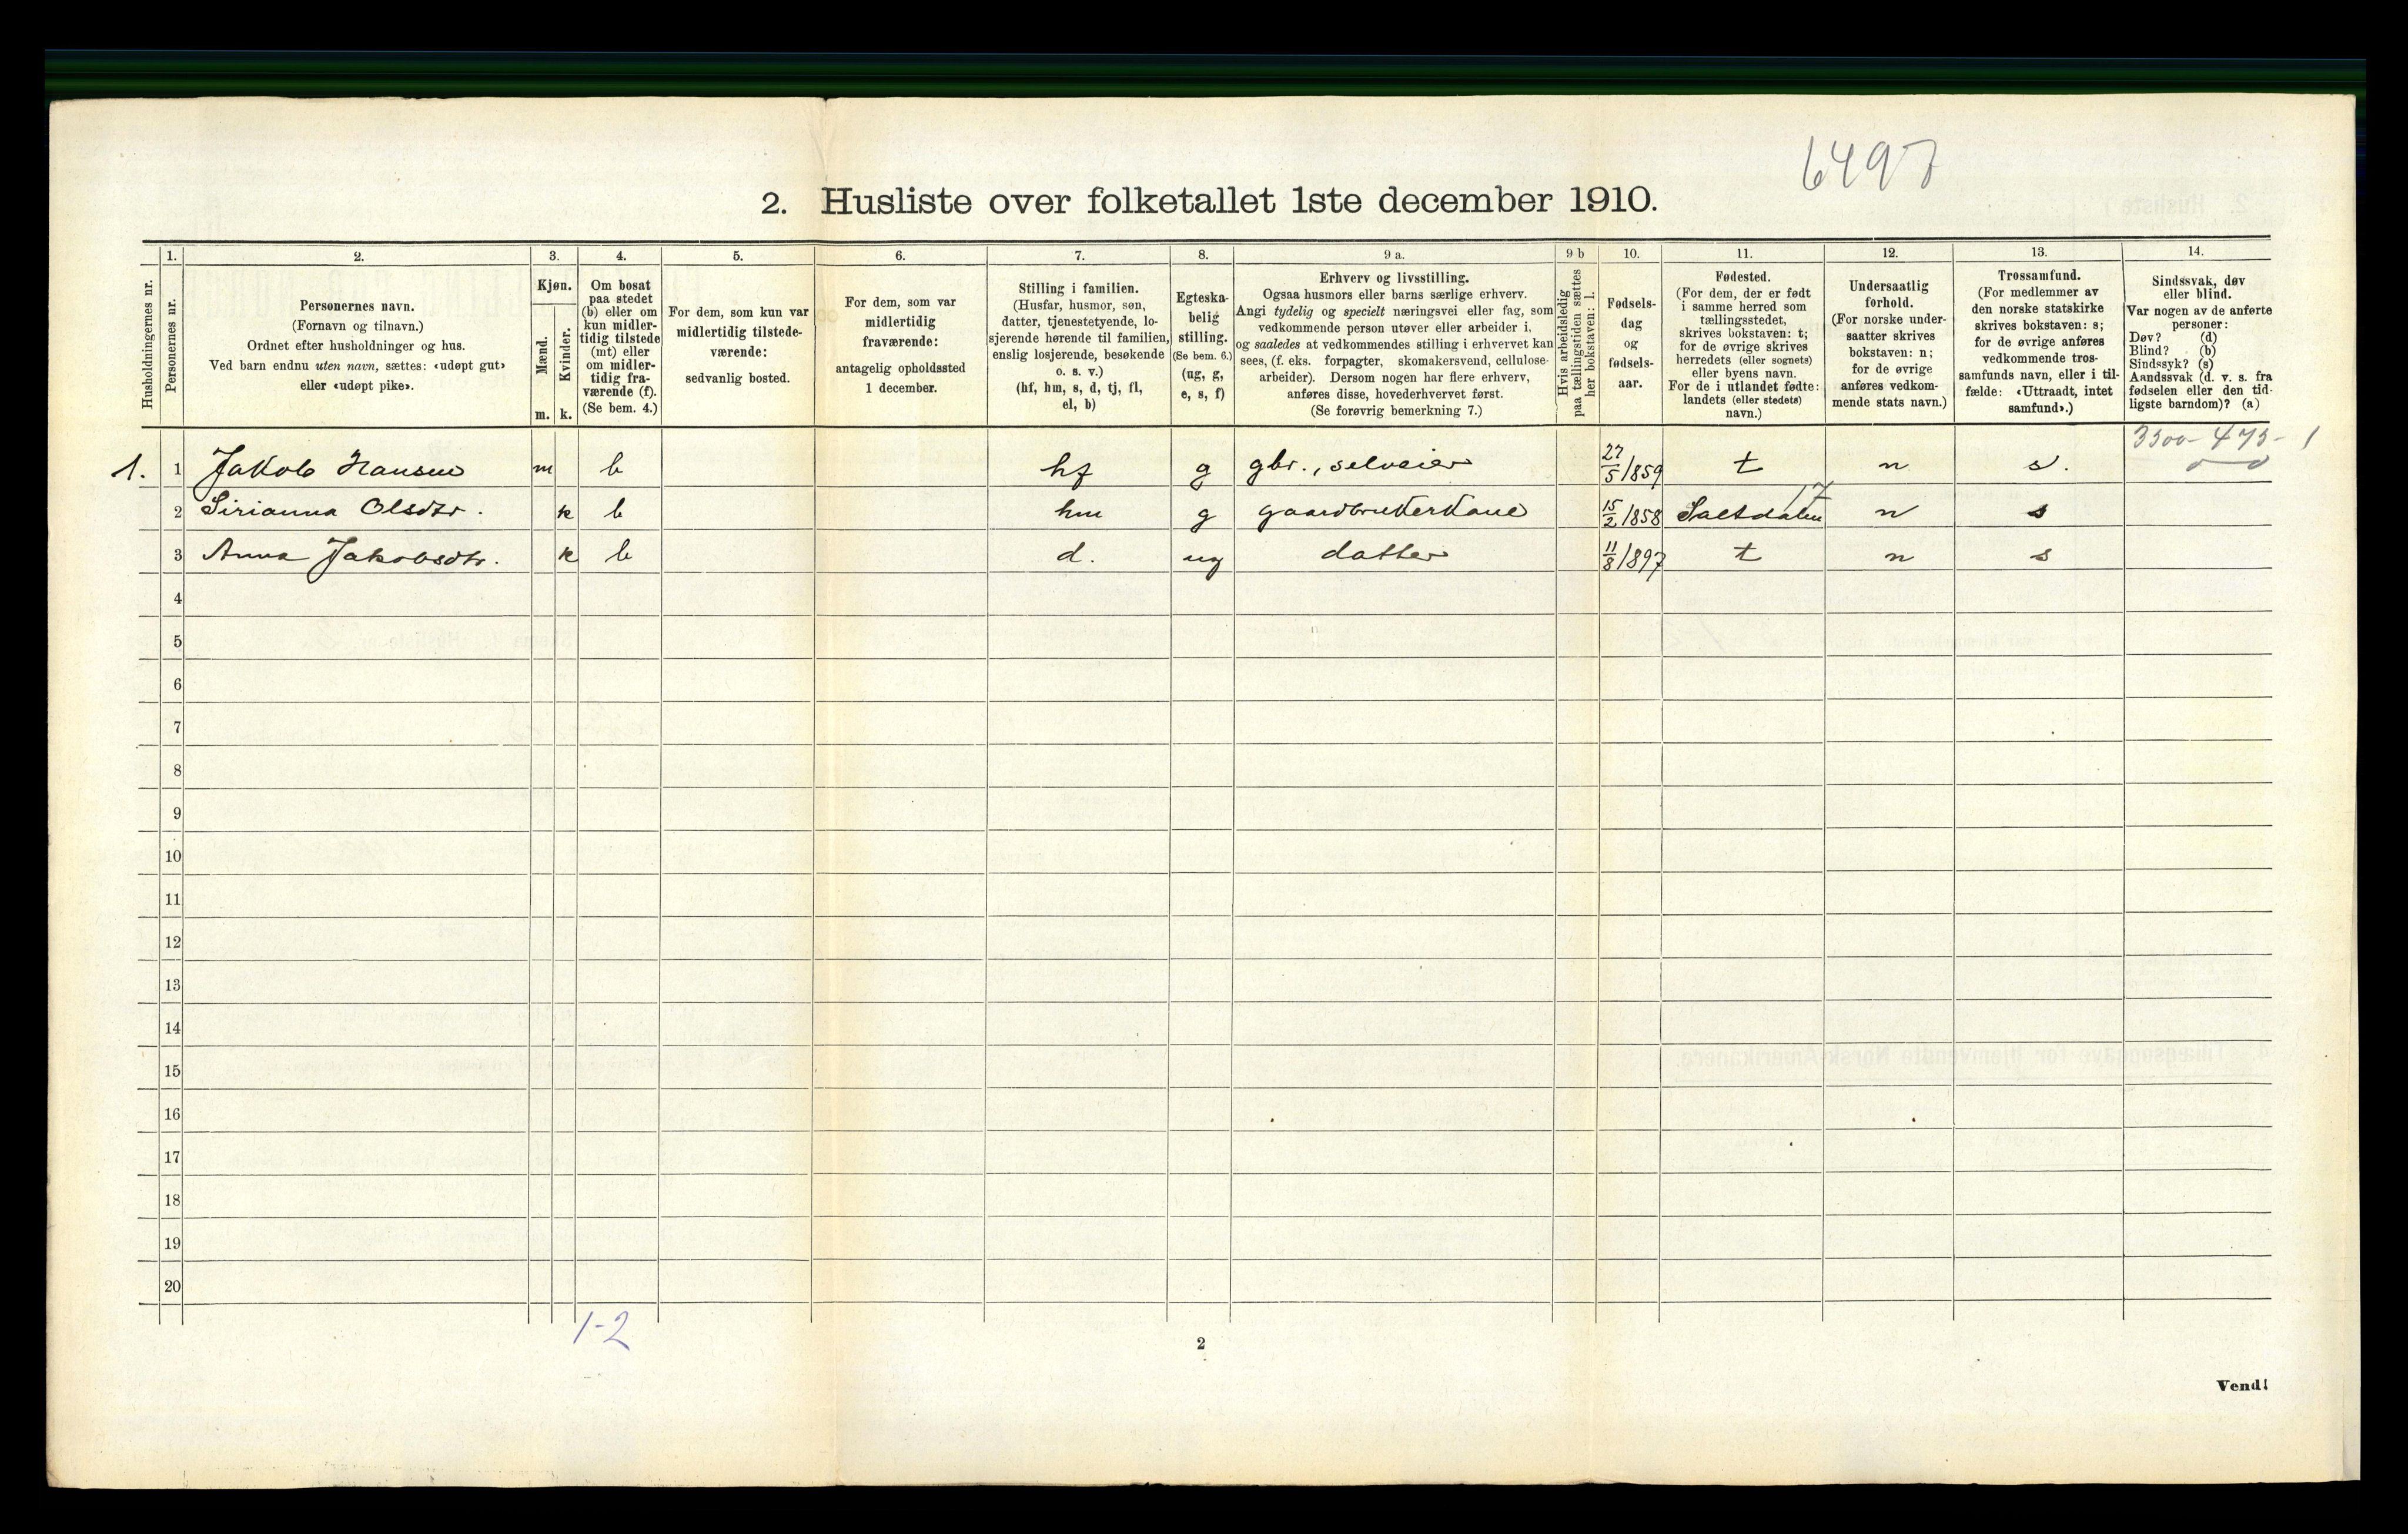 6497
2. Husliste over folketallet 1ste december 1910.
Husholdningernes nr.
1.
Personernes nr.
2.
Personernes navn.
(Fornavn og tilnavn.)
Ordnet efter husholdninger og hus.
Ved barn endnu uten navn, sættes: «udøpt gut»
eller «udøpt pike».
3.
Kjøn.
Mænd.
m.
Kvinder.
k.
4.
Om bosat
paa stedet
(b) eller om
kun midler-
tidig tilstede
(mt) eller
om midler-
tidig fra-
værende (f).
(Se bem. 4.)
5.
For dem, som kun var
midlertidig tilstede-
værende:
sedvanlig bosted.
6.
For dem, som var
midlertidig
fraværende:
antagelig opholdssted
1 december.
7.
Stilling i familien.
(Husfar, husmor, søn,
datter, tjenestetyende, lo-
sjerende hørende til familien,
enslig losjerende, besøkende
o. s. v.)
(hf, hm, s, d, tj, fl,
el, b)
8.
Egteska-
belig
stilling.
(Se bem. 6.)
(ug, g,
e, s, f)
9 a.
Erhverv og livsstilling.
Ogsaa husmors eller barns særlige erhverv.
Angi tydelig og specielt næringsvei eller fag, som
vedkommende person utøver eller arbeider i,
og saaledes at vedkommendes stilling i erhvervet kan
sees, (f. eks. forpagter, skomakersvend, cellulose-
arbeider). Dersom nogen har flere erhverv,
anføres disse, hovederhvervet først.
(Se forøvrig bemerkning 7.)
9 b
Hvis arbeidsledig
paa tællingstiden sættes
her bokstaven: l.
10.
Fødsels-
dag
og
fødsels-
aar.
11.
Fødested.
(For dem, der er født
i samme herred som
tællingsstedet,
skrives bokstaven: t;
for de øvrige skrives
herredets (eller sognets)
eller byens navn.
For de i utlandet fødte:
landets (eller stedets)
navn.)
12.
Undersaatlig
forhold.
(For norske under-
saatter skrives
bokstaven: n;
for de øvrige
anføres vedkom-
mende stats navn.)
13.
Trossamfund.
(For medlemmer av
den norske statskirke
skrives bokstaven: s;
for de øvrige anføres
vedkommende tros-
samfunds navn, eller i til-
fælde: «Uttraadt, intet
samfund».)
14.
Sindssvak, døv
eller blind.
Var nogen av de anførte
personer:
Døv? (d)
Blind? (b)
Sindssyk? (s)
Aandssvak (d. v. s. fra
fødselen eller den tid-
ligste barndom)? (a)
3300- 475- 1
1. 1 Jakob Hansen m b hf g gbr., selveier 27/5 1859 t n s.
2 Sirianna Olsdtr. k b hm g gaardbrukerkone 15/2 1858 Saltdalen 17 n s
3 Anna Jakobsdtr. k b d. ug datter 11/8 1897 t n s
4
5
6
7
8
9
10
11
12
13
14
15
16
17
18
19
20
1-2
2
Vend!